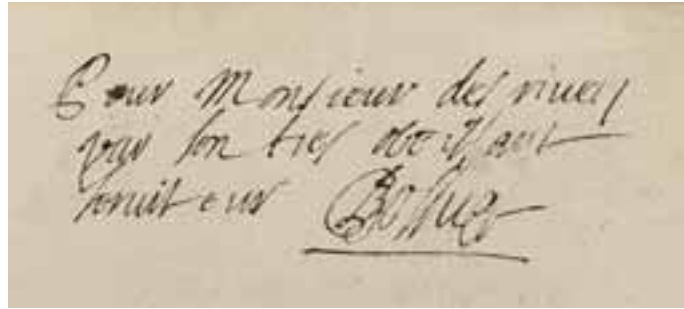 Pour Monsieur des riues
par son tres obeissant
seruiteur Bosse